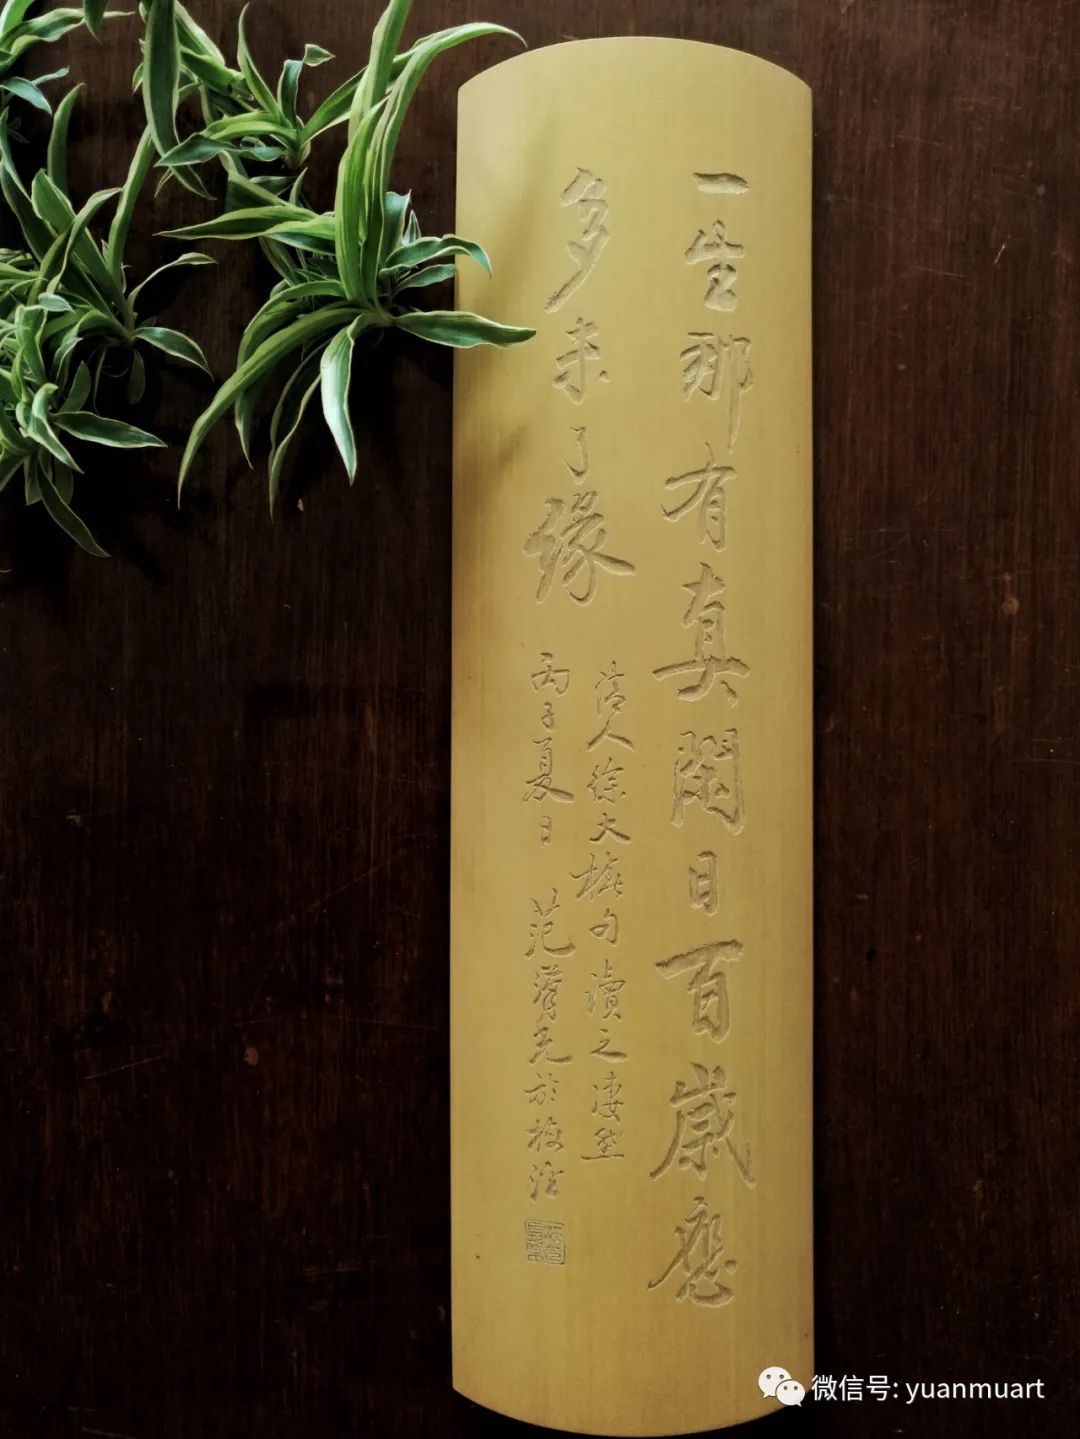 一生那有真閑日百歲應
多未了緣
清人徐大椿句讀之凄然
丙子夏日 范肖光於梅
微信号: yuanmuart